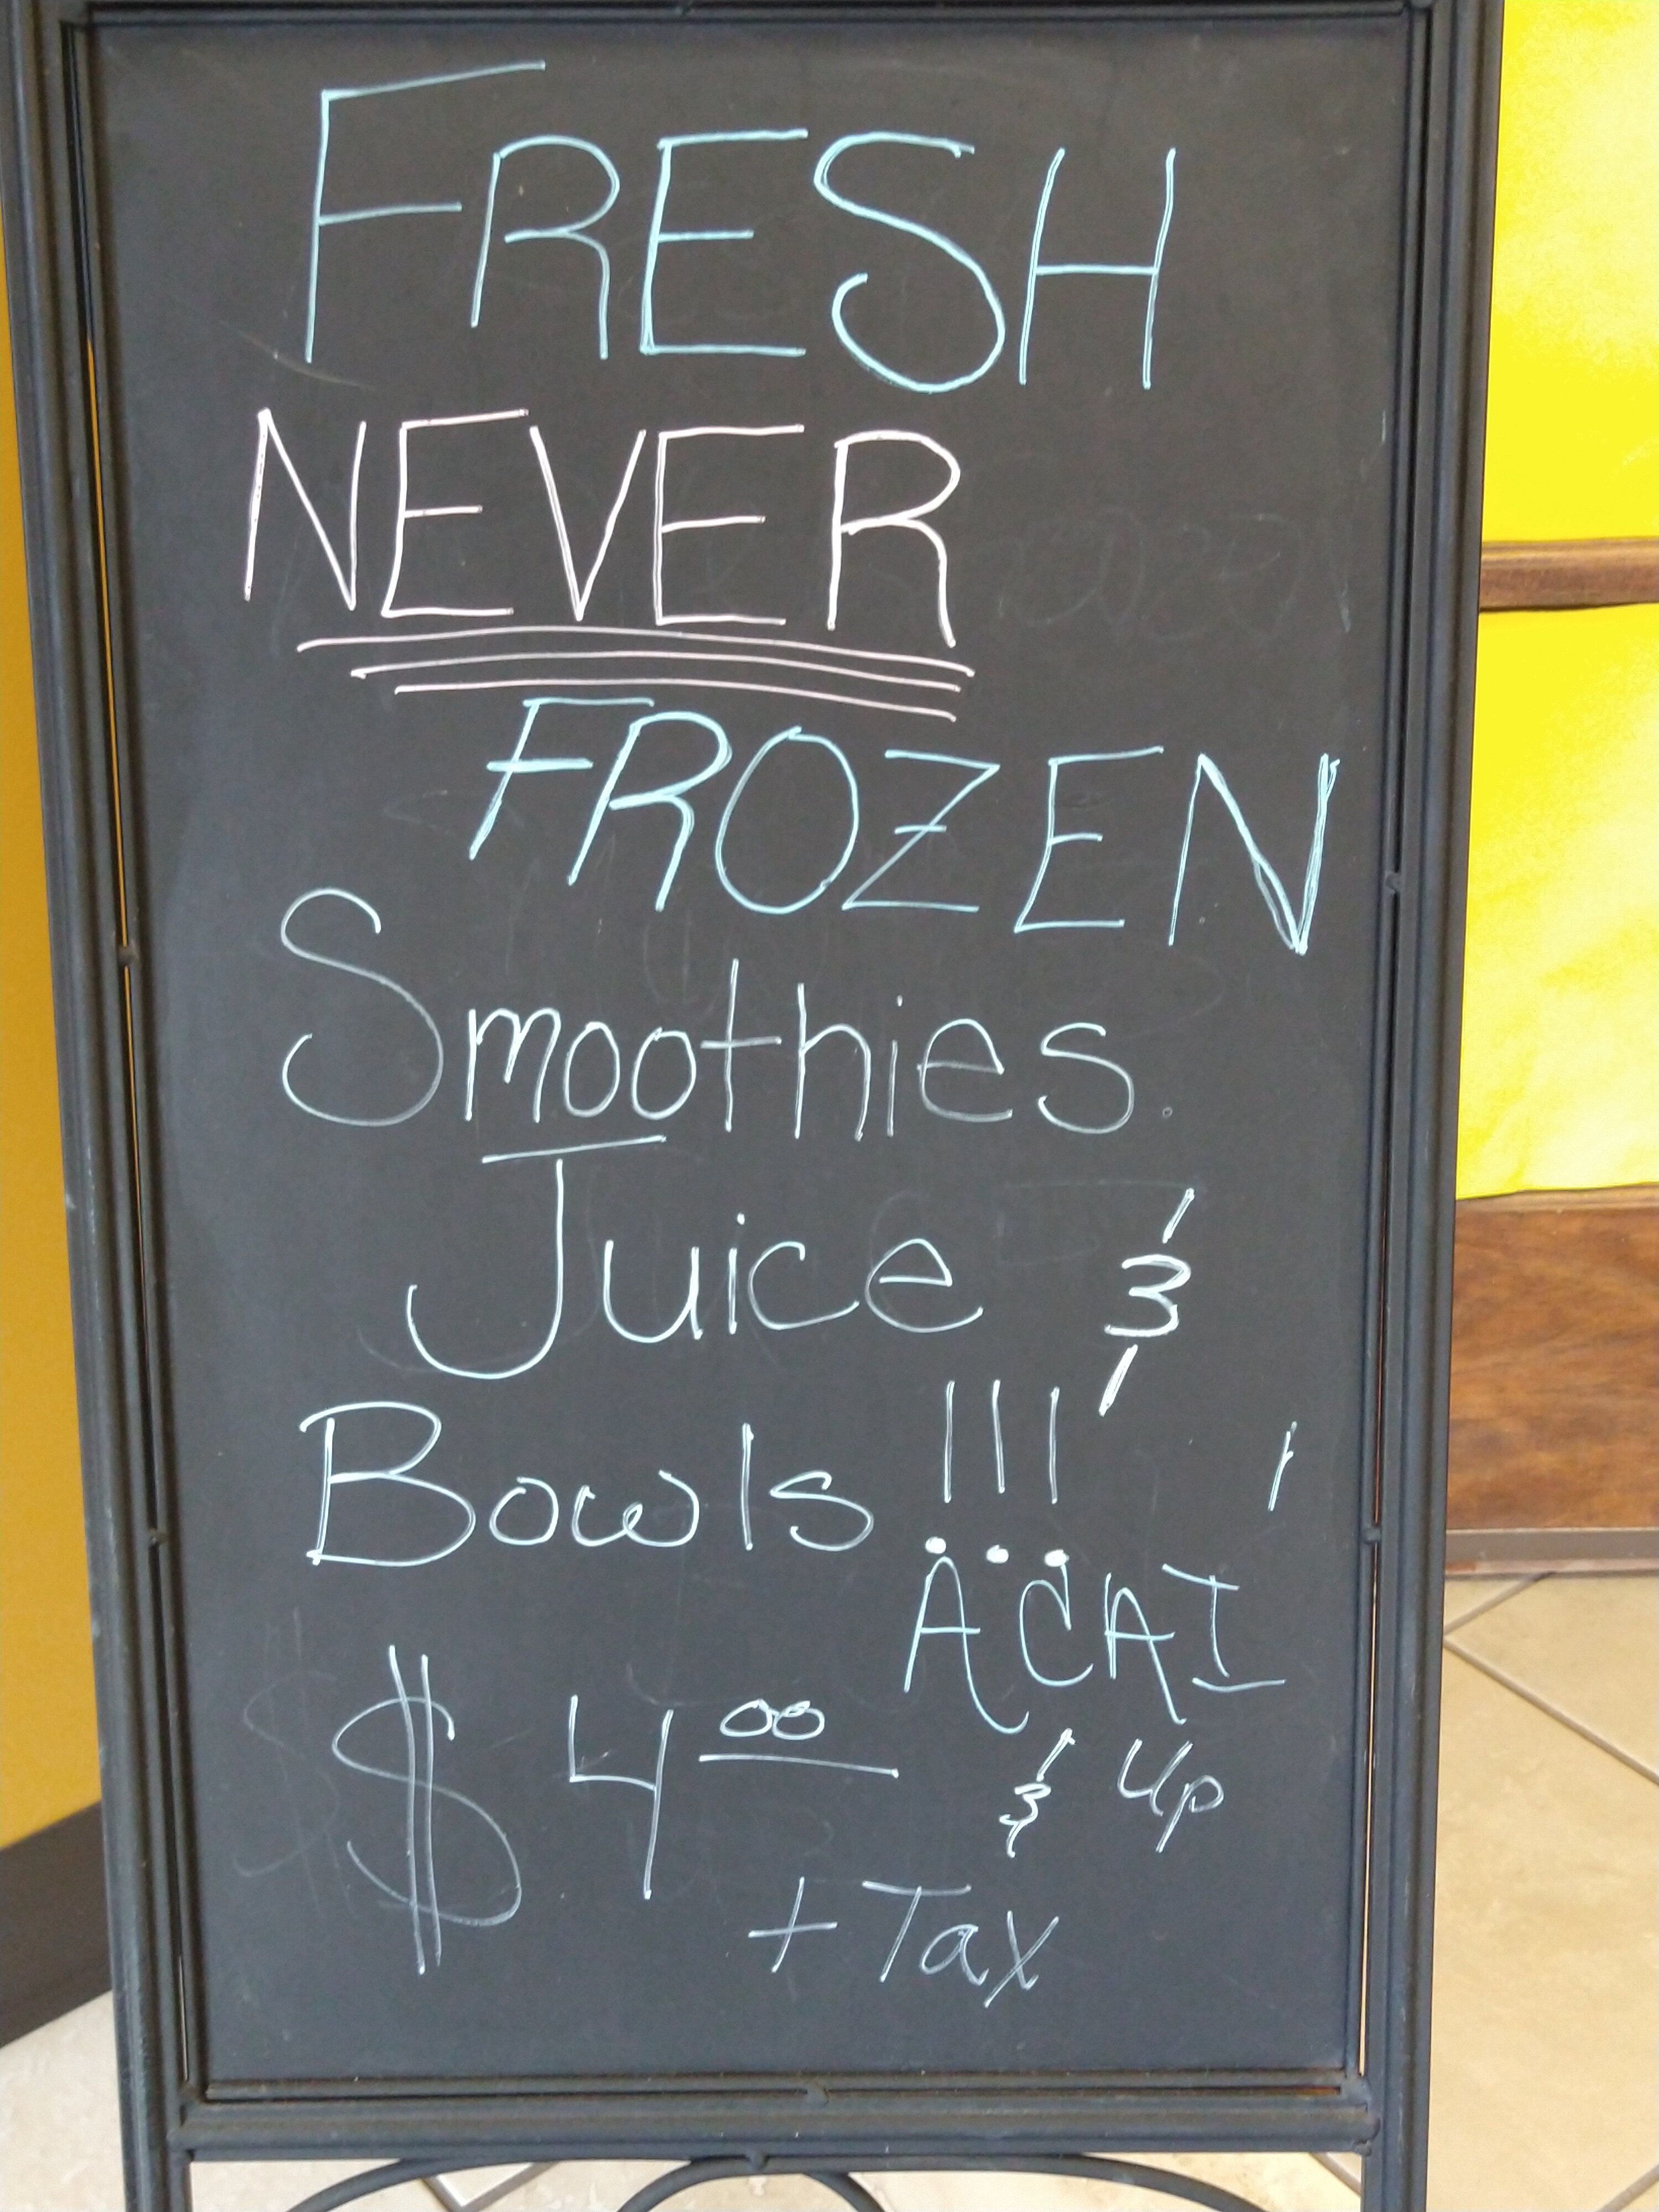 FRESH
NEVER
FROZEN
Smoothies.
Juice &
Bowls !!!
ACAI
$ 4 00 & Up
+ Tax